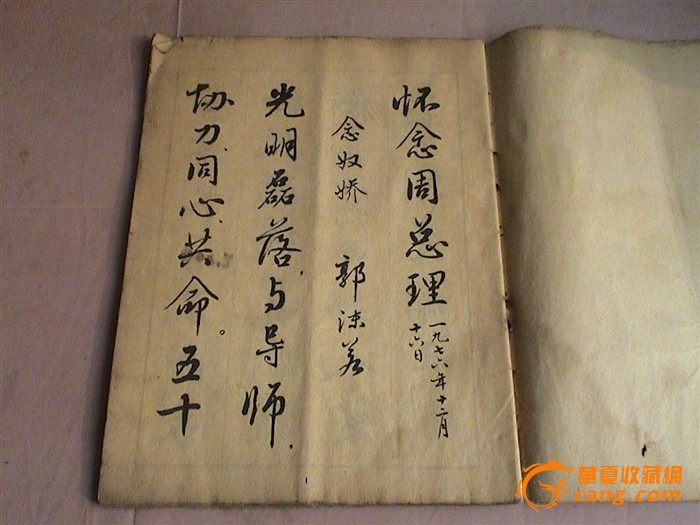 怀念周总理
一九七六年十二月
十六日
念奴娇 郭沫若
光明磊落,与导师,
协力、同心、共命。五十
華夏收藏網
cang.com